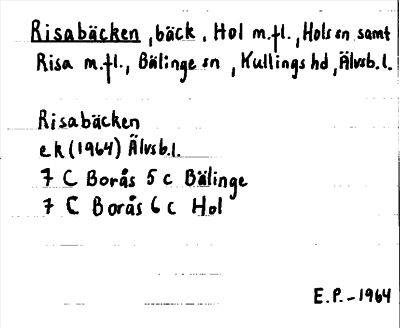 Risabäcken, bäck, Hol m.fl., Hols sn samt
Risa m.fl., Bälinge sn, Kullings hd, Älvsb.l.
Risabäcken
ek (1964) Älvsb.l.
7 C Borås 5 c Bälinge
7 C Borås 6 c Hol
E.P.-1964